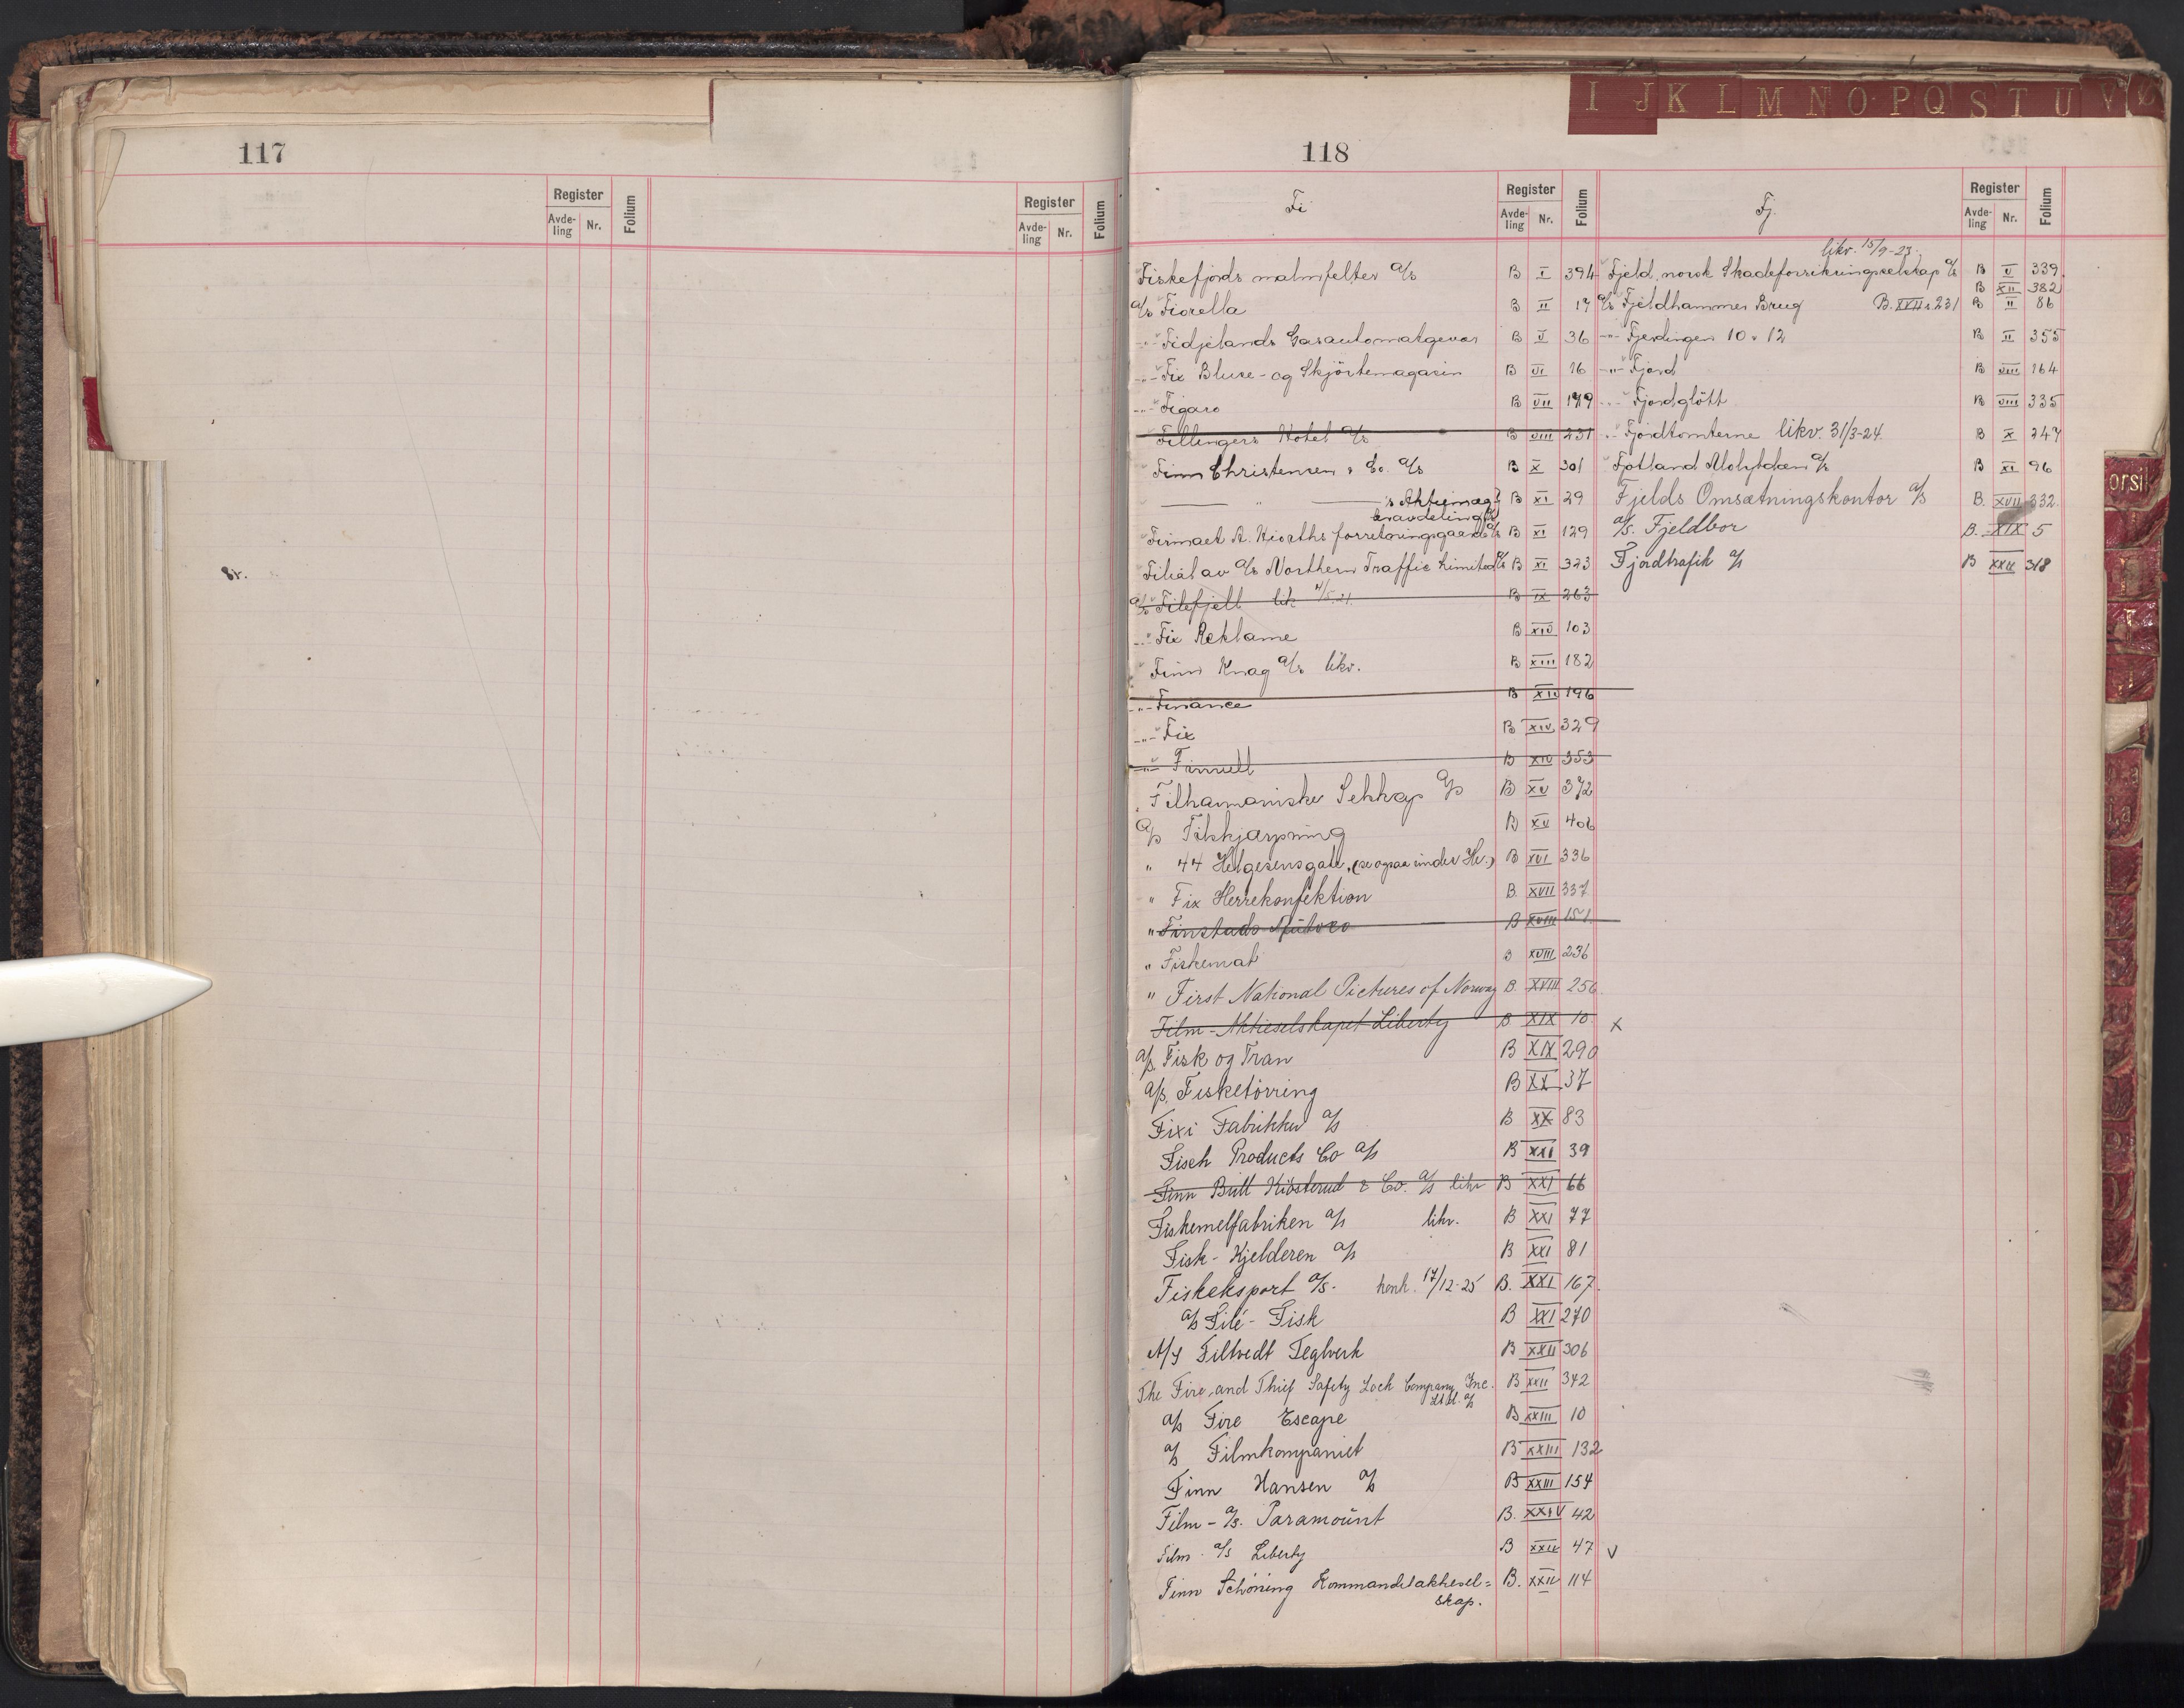 117
Register
Avde-
ling
Nr.
Folium
Register
Avde-
ling
Nr.
Folium
I J K L M N O P Q S T U V Ø
118
Fi
Register
Avde-
ling
Nr.
Folium
Fiskefjords malmfelter A/s B I 394
A/s Fiorella B II 17
-"- Fidjelands Gasautomatgevær B V 36
-"- Fix Bluse- og Skjörtemagasin B VI 16
-"- Figaro B VII 179
Fillingers Hotel A/s B VIII 231
Finn Christensen & Co. A/s B X 301
— " — 's Aktiemæg- B XI 29
leravdeling A/s
Firmaet A. Hiorths forretningsgaard A/s B XI 129
Filial av A/s Northern Traffic Limited A/s B XI 323
A/s Filefjell lik 4/5.21. B IX 263
-"- Fix Reklame B XIV 103
Finn Knag A/s likv. B XIII 182
-"- Finance B XII 196
-"- Fix B XIV 329
-"- Finnell B XIV 353
Filharmoniske Selskap A/s B XV 372
A/s Filskjærpning B XV 406
" 44 Helgesensgate, (se ogsaa under He.) B XVI 336
" Fix Herrekonfektion B. XVII 337
" Finstads B XVIII 151.
" Fiskemat B XVIII 236
" First National Pictures of Norway B. XVIII 256
Film-Aktieselskapet Liberty B XIX 10 x
A/s. Fisk og Tran B XIX 290
A/s. Fisketörring B XX 37
Fixi Fabrikker A/s B XX 83
Fisch Products Co A/s B XXI 39
Finn Bull Kiösterud & Co. A/s likv B XXI 66
Fiskemelfabriken A/s likv. B XXI 77
Fisk-Kjelderen A/s B XXI 81
Fiskeksport A/s. konk. 17/12-25 B. XXI 167.
A/s Filé-Fisk B XXI 270
A/S Filtvedt Teglverk B XXII 306
The Fire and Thief Safety Lock Company Inc. B XXII 342
Ltd. A/s
A/s Fire Escape B XXIII 10
A/s Filmkompaniet B XXIII 132
Finn Hansen A/s B XXIII 154
Film-A/s. Paramount B. XXIV 42
Film A/s Liberty B XXIV 47 v
Finn Schöning Kommanditaktiesel= B. XXIV 114
skap.
Fj.
Register
Avde-
ling
Nr.
Folium
likv. 15/9-23.
Fjeld, norsk Skadeforsikringsselskap A/s B V 339
B XII 382
A/s Fjeldhammer Brug B. XVII s. 231 B II 86
-"- Fjerdingen 10 & 12 B II 355
-"- Fjord B VIII 164
-"- Fjordglött B VIII 335
-"- Fjordtomterne likv. 31/3-24. B X 247
Fjotland Molybdæn A/s B XI 96
Fjelds Omsætningskontor A/s B. XVII 332.
A/s. Fjeldbor B. XIX 5
Fjordtrafik A/s B XXII 318